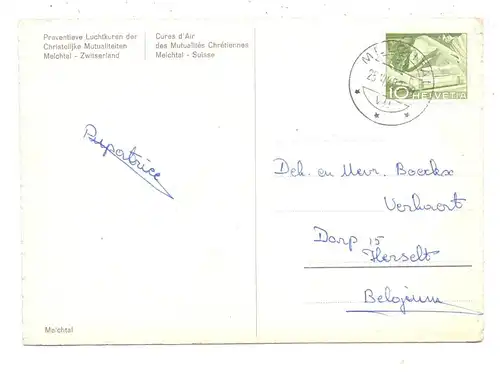 Preventieve Luchtkuren der
Christelijke Mutualiteiten
Melchtal - Zwitserland
Cures d'Air
des Mutualités Chrétiennes
Melchtal - Suisse
10 HELVETIA
Dhr. en Mevr. Boeckx
Verhaert
Dorp 15
Herselt
Belgium
Melchtal